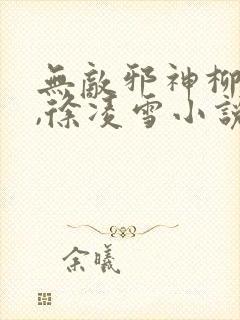 無敵邪神柳
,徐凌雪小說
余曦